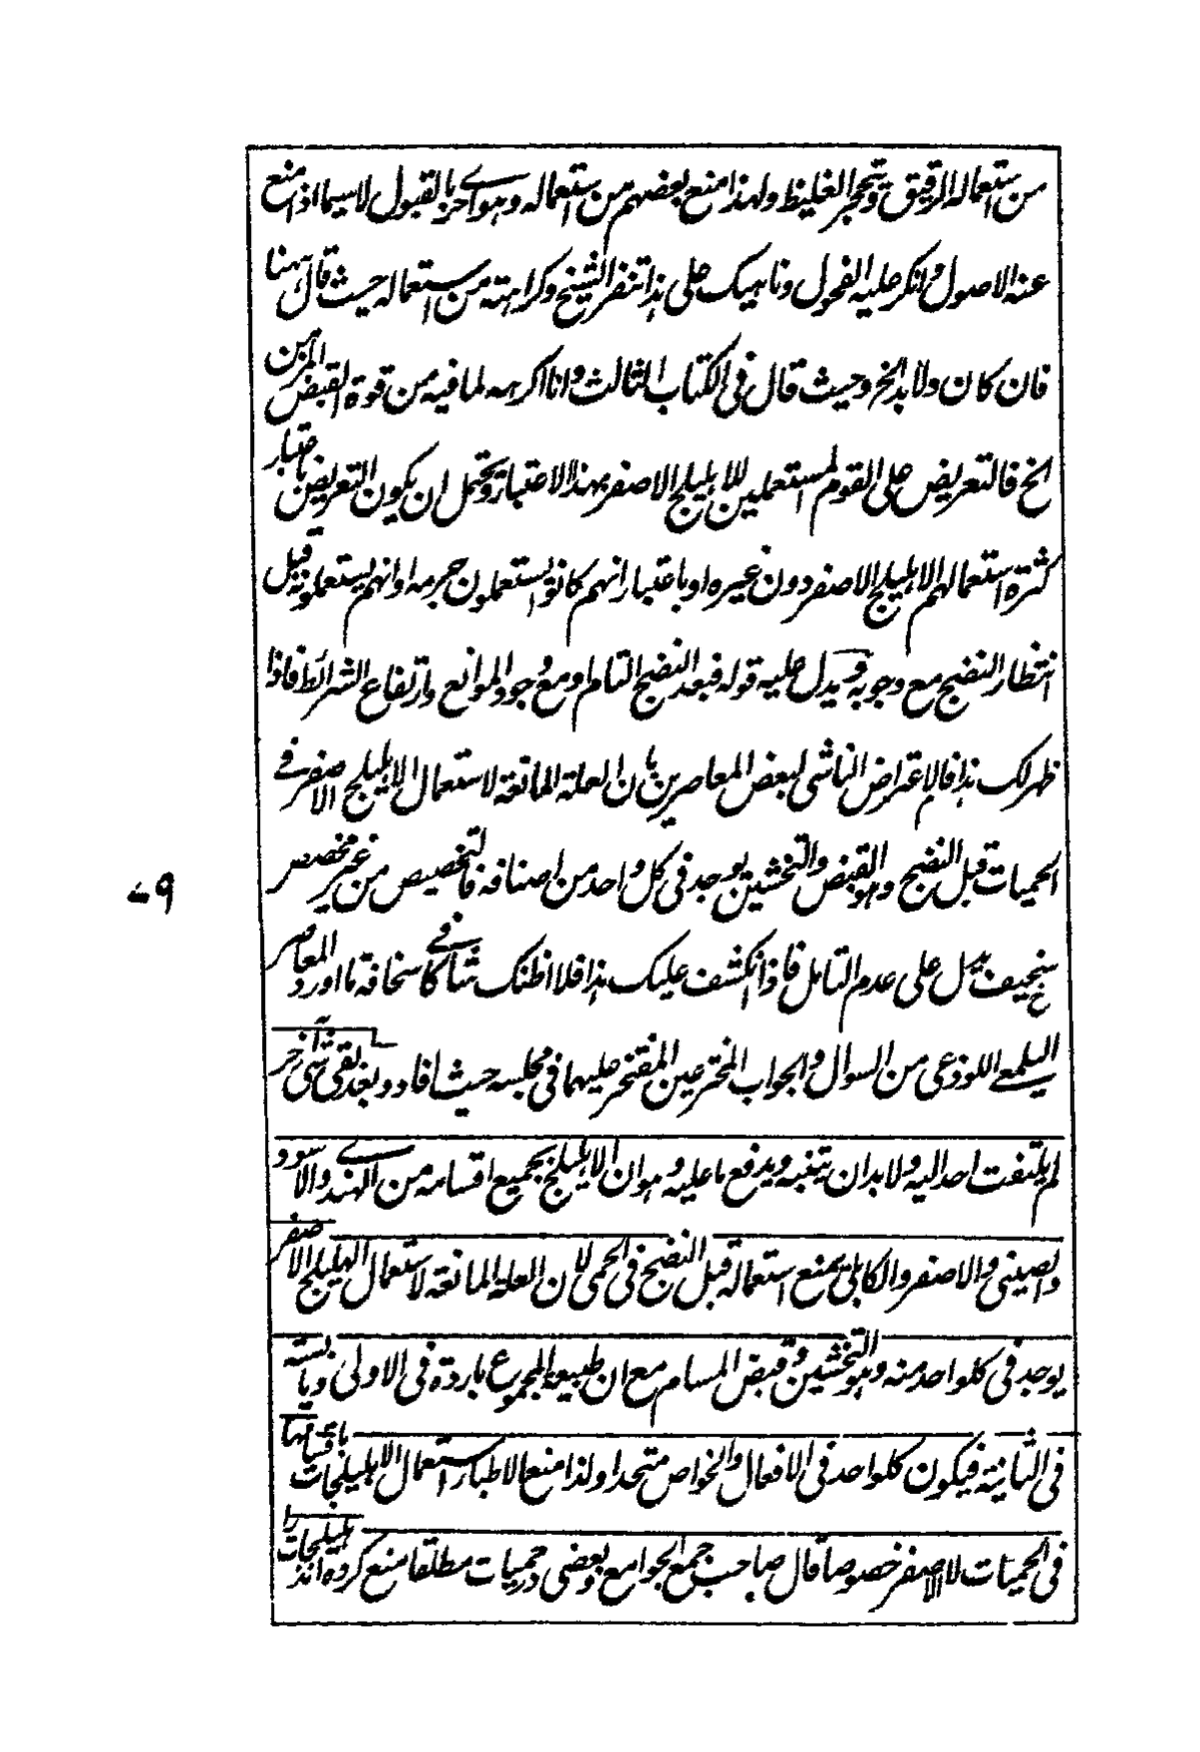 من استعماله الرقيق ويتحجر الغليظ ولهذا منع بعضهم من استعماله وهو احرى بالقبول لاسيما اذا منع
عنه الاصول وانكر عليه الفحول وناهيك على هذا تنفر الشيخ وكراهته من استعماله حيث قال ههنا
فان كان ولابد الخ وحيث قال فى الكتاب الثالث وانا اكرهه لما فيه من قوة القبض
الخ فالتعريض على القوم المستعملين للاهليلج الاصفر بهذا الاعتبار ويحتمل ان يكون التعريض باعتبار
كثرة استعمالهم الاهليلج الاصفر دون غيره او باعتبار انهم كانوا يستعملون جرمه او انهم يستعملونه قبل
انتظار النضج مع وجوبه ويدل عليه قوله فبعد النضج التام او مع وجود الموانع وارتفاع الشرائط فاذا
ظهر لك هذا فالاعتراض الناشى لبعض المعاصرين بان العلة المانعة لاستعمال الاهليلج الاصفر فے
الحميات قبل النضج وهو القبض والتخشين يوجد فى كل واحد من اصنافه فالتخصيص من غير مخصص
سخيف يدل على عدم التامل فاذا انكشف عليك هذا فلا اظنك شاكا فے سخافة ما اورد المعاصر
اليلمعے اللوذعى من السوال والجواب المخترعين المفتخر عليهما فى مجلسه حيث افاد وبعد بقى شئ آخر
لم يلتفت احد اليه ولابد ان يتنبه ويدفع ما عليه وهو ان الاهليلج بجميع اقسامه من الهندے والاسود
والصينى والاصفر والكابلى يمنع استعماله قبل النضج فى الحمى لان العلة المانعة لاستعمال الهليلج الاصفر
يوجد فى كلواحد منه وهو التخشين وقبض المسام مع ان طبيعة المجموع باردة فى الاولى ويابسته
فى الثانية فيكون كلواحد فى الافعال والخواص متحدا ولذا منع الاطباء استعمال الاهليلجات باقسامها
فى الحميات لا الاصفر خصوصا قال صاحب جمع الجوامع وبعضى در حميات مطلقا منع كرده اند هليلجات را
٧٩